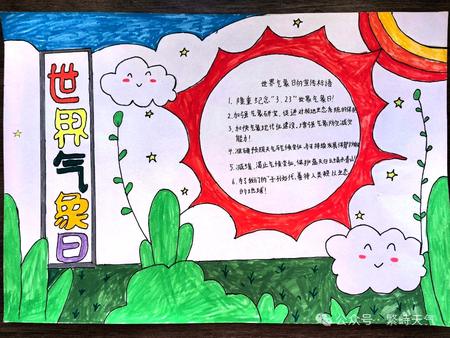 世界气象日
世界气象日的宣传标语
1. 隆重纪念"3.23"世界气象日!
2. 加强气象研究,促进对极地生态系统的保护
3. 加快气象现代化建设,增强气象防灾减灾
能力!
4. 准确预报天气与气候变化,为可持续发展保驾护航
5. 减缓、遏止气候变化,保护
6.
的地球!
公众号·繁峙天气